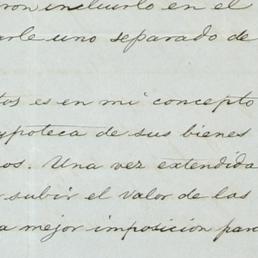 ron incluirlo en el
arle uno separado de
tos es en mi concepto
ypoteca de sus bienes
os. Una vez extendida
subir el valor de las
a mejor imposicion para